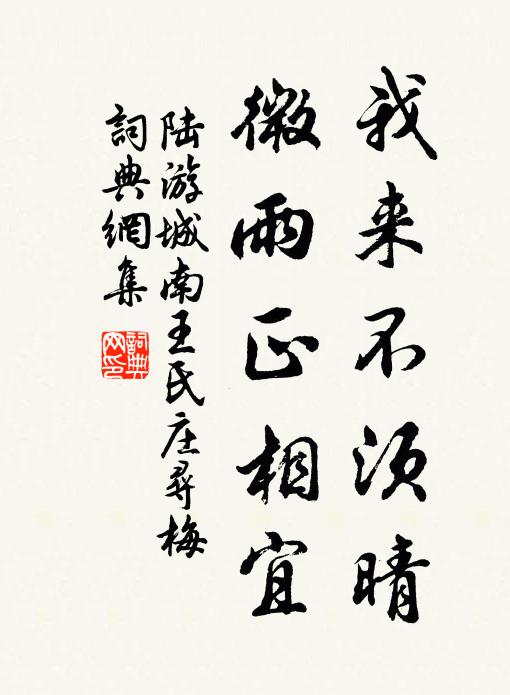 我来不须晴
微雨正相宜
陆游城南王氏庄寻梅
詞典網集
詞典
网印